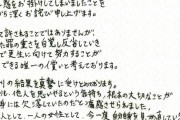 惑をお掛けしてしまいましたことを
がら深くお詫び申し上げます。
て許されることではありませんが、
た罪の重さを自覚し反省していき
で更生に向けて努力することが
できる唯一の償いと考えております。
りの結果を真摯に受けとめております。
も、他人を思いやるという気持ち、根本の大切なことが
には欠落していたものだと痛感させられました。
人として、一人の女性として、今一度自分自身を見つめ直して